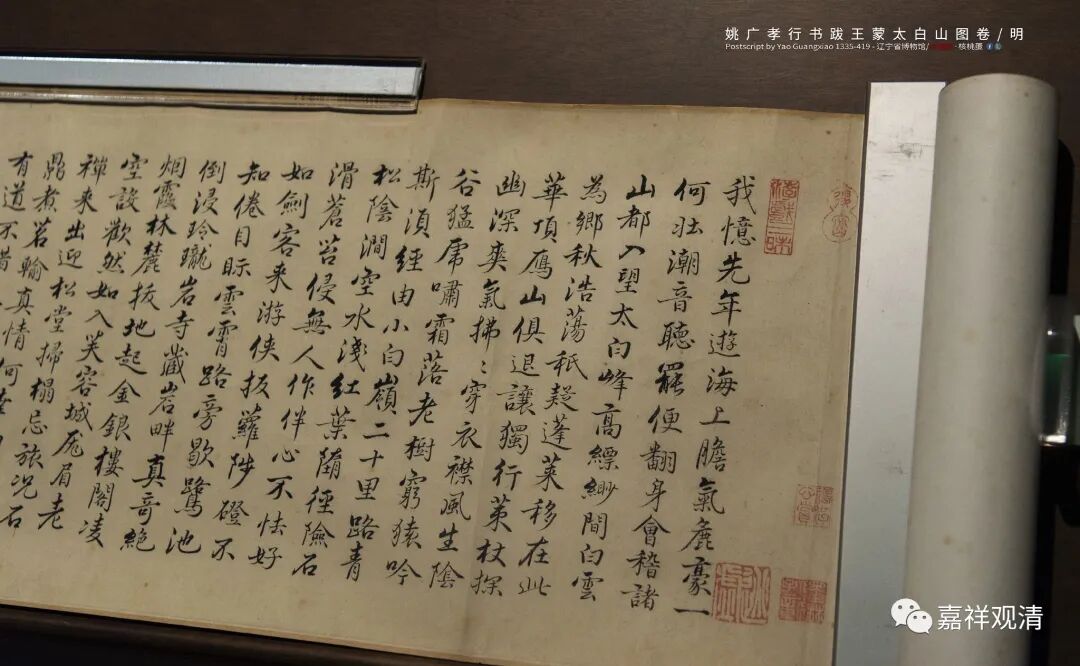 姚广孝行书跋王蒙太白山图卷/明
Postscript by Yao Guangxiao 1335-419 - 辽宁省博物馆/ - 核桃蛋
我憶先年遊海上膽氣麁豪一
何壯潮音聽罷便翻身會稽諸
山都入望太白峰高縹緲間白雲
為鄉秋浩蕩秖疑蓬萊移在此
華頂鴈山俱退讓獨行策杖探
幽深爽氣拂〻穿衣襟風生陰
谷猛虎嘯霜落老樹窮猿吟
斯湏經由小白嶺二十里路青
松陰澗空水淺紅葉墮徑險石
滑蒼苔侵無人作伴心不怯好
如劍客来游俠扳蘿陟磴不
知倦目眎雲霄路旁歇鷺池
倒浸玲瓏岩寺藏岩畔真奇絕
烟霞林麓拔地起金銀樓閣凌
空設歡然如入芙容城厖眉老
禪来出迎松堂掃榻忘旅況石
鼎煮茗輸真情何
有道不惜
嘉祥观清